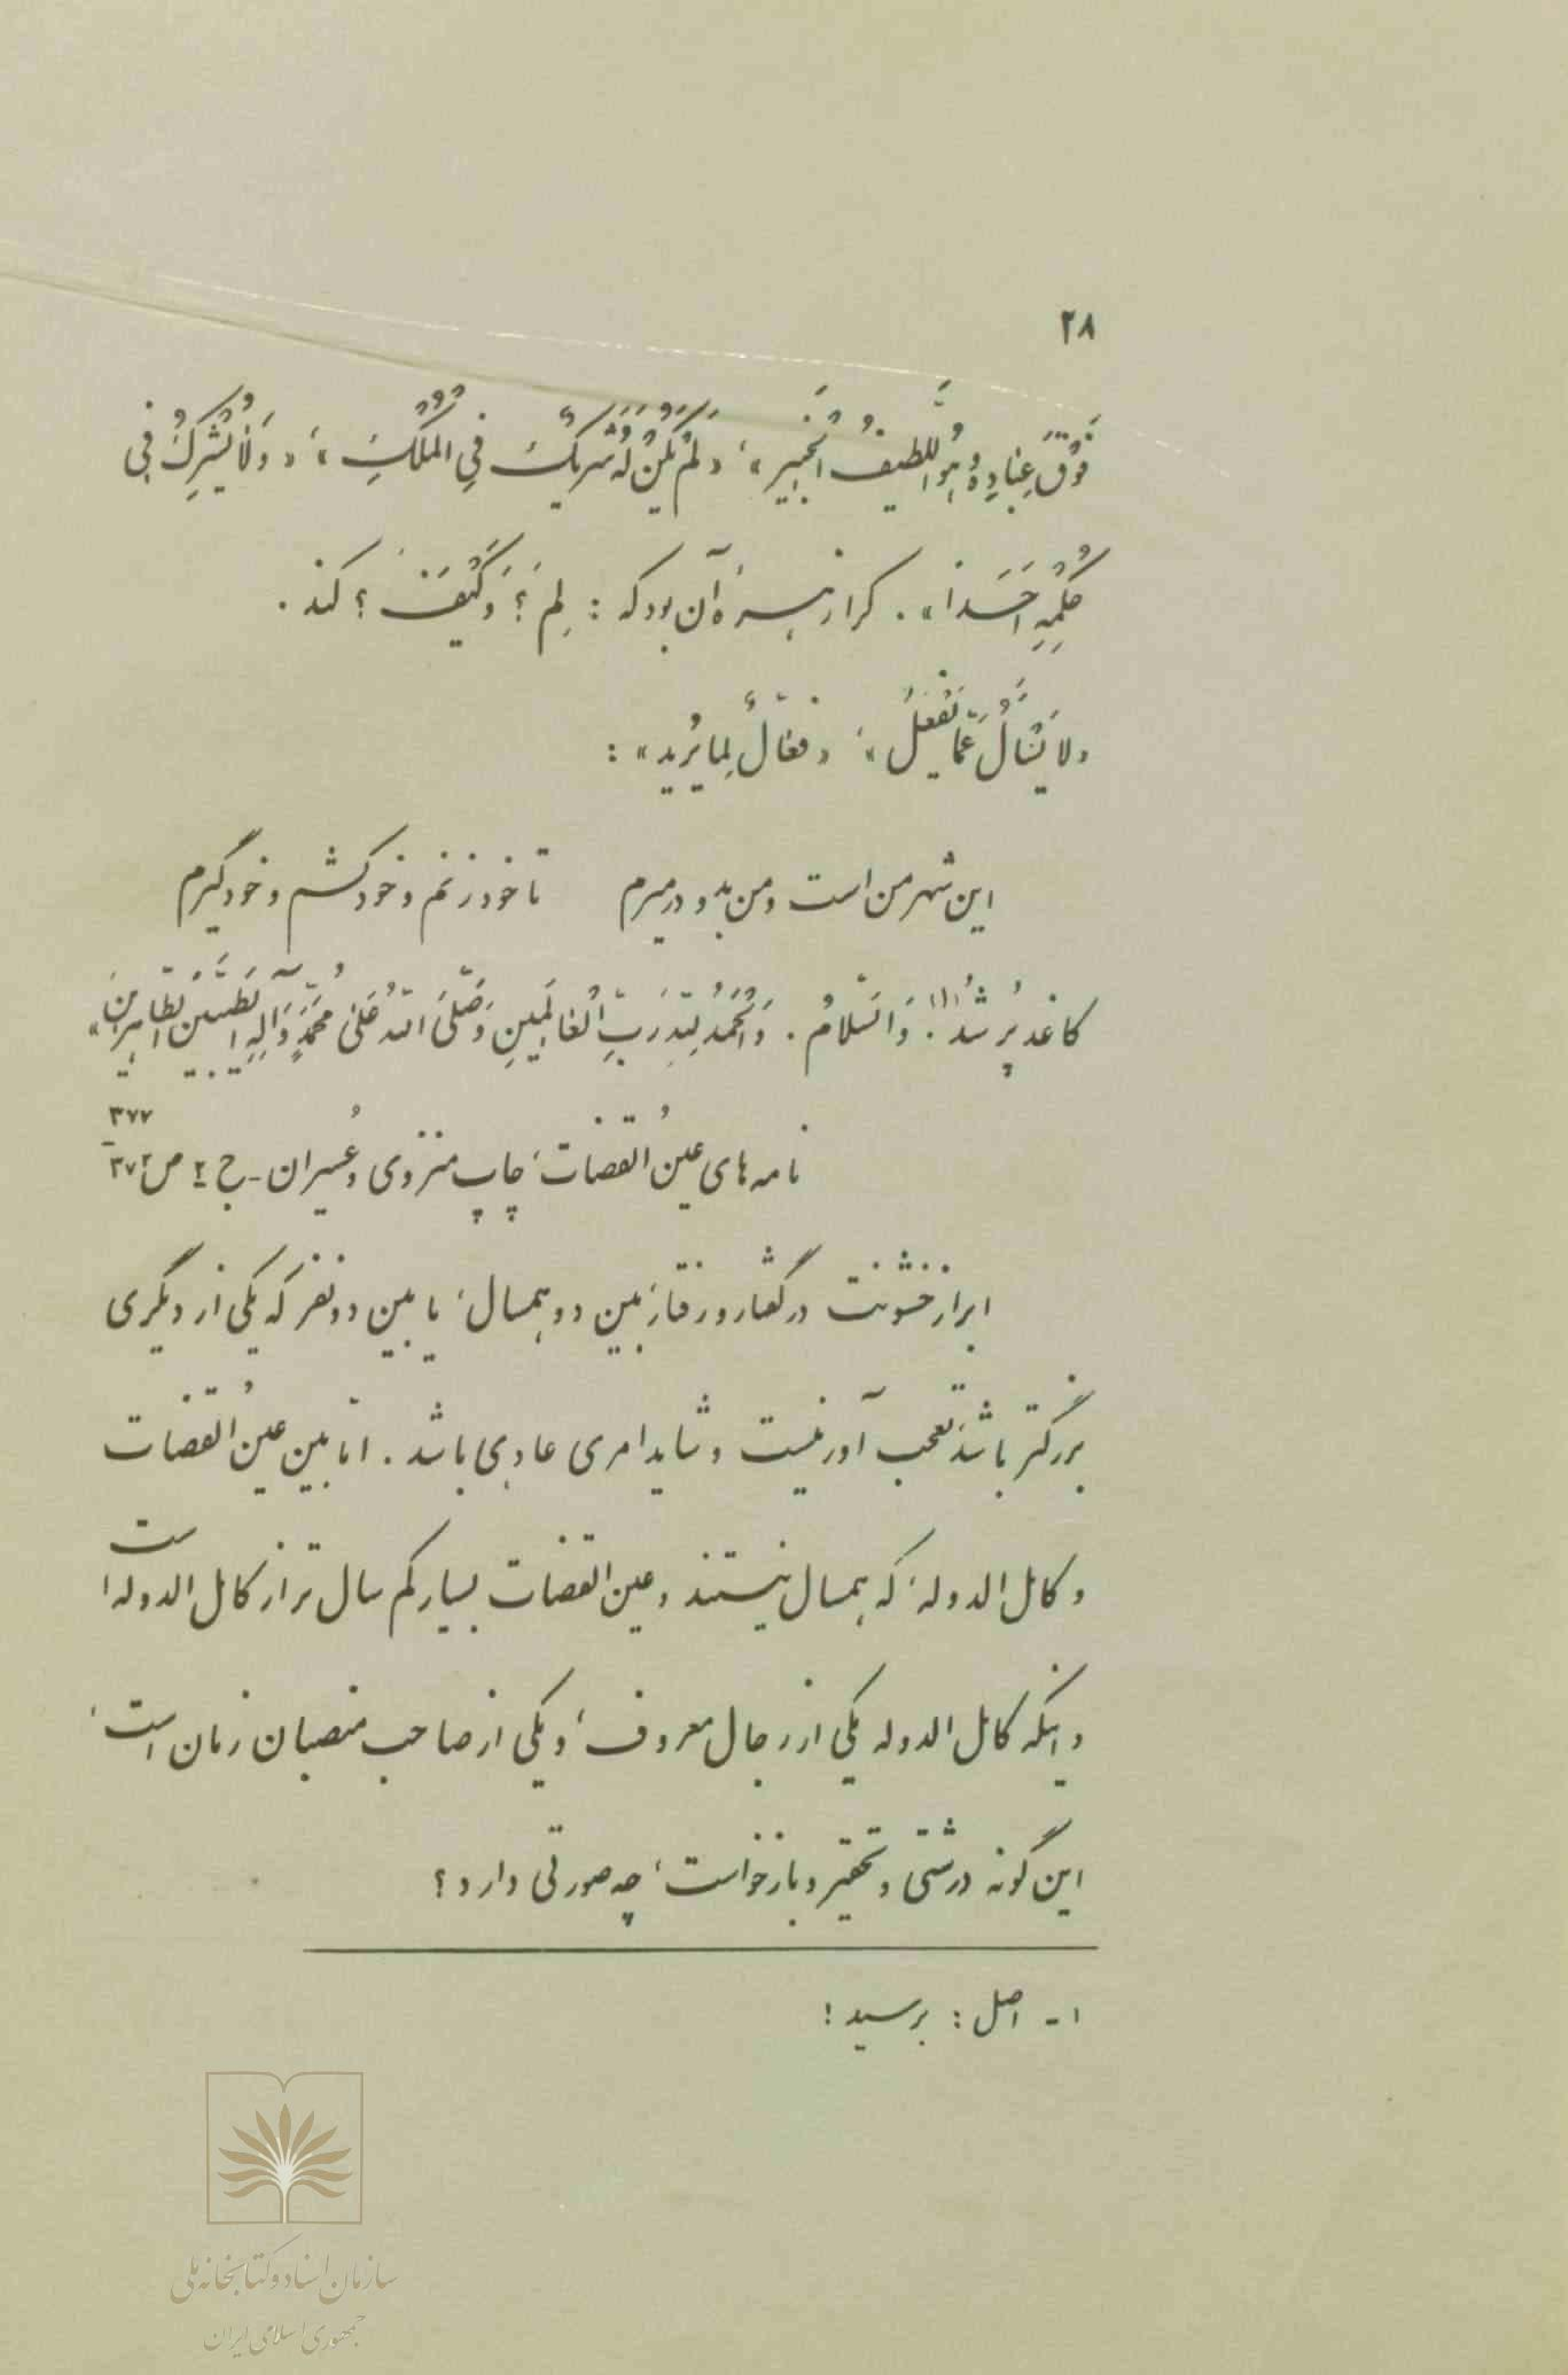 ۲۸
فَوْقَ عِبٰادِهِ وُهُوَ اللَّطيفُ الْخَبير»، «لَمْ يَكُنْ لَهُ شَريكٌ فىِ الْمُلْكِ»، «وَلٰا يُشْرِكُ فى
حُكْمِهِ اَحَداً». کرا زهرهٔ آن بود که : لِمَ ؟ وَ كَيْفَ ؟ کند .
«لا يُسْأَلُ عَمّا يَفْعَلُ»، «فعّالٌ لِما يُريد» :
این شهر من است و من بدو در میرم تا خود زنم و خود کشم و خود گیرم
کاغذ پُر شُد(۱). وَ السّلامُ . وَ الْحَمْدُ لِلّهِ رَبِّ الْعٰالَمينِ وَ صَلَّى اللّهُ عَلىٰ مُحَمَّدٍ وَ آلِهِ الطَّيِّبينَ الطّاهِرينَ»
نامه‌های عینُ القضات، چاپ منزوی وعُسیران - ج ۲ ص ۳۷۲ - ۳۷۷
ابراز خشونت در گفتار و رفتار، بین دو همسال، یا بین دو نفر که یکی از دیگری
بزرگتر باشد، تعجب آور نیست و شاید امری عادی باشد . امّا بین عینُ القضات
و کامل الدوله، که همسال نیستند و عین القضات بسیار کم سال تر از کامل الدوله است
و اینکه کامل الدوله یکی از رجال معروف، و یکی از صاحب منصبان زمان است،
این گونه درشتی و تحقیر و بازخواست، چه صورتی دارد ؟
۱- اصل : برسید !
سازمان اسناد و کتابخانه ملی
جمهوری اسلامی ایران